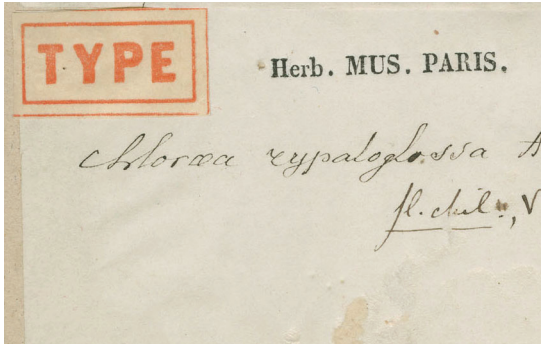 TYPE
Herb. MUS. PARIS.
Chloræa rypaloglossa
fl. chil., V